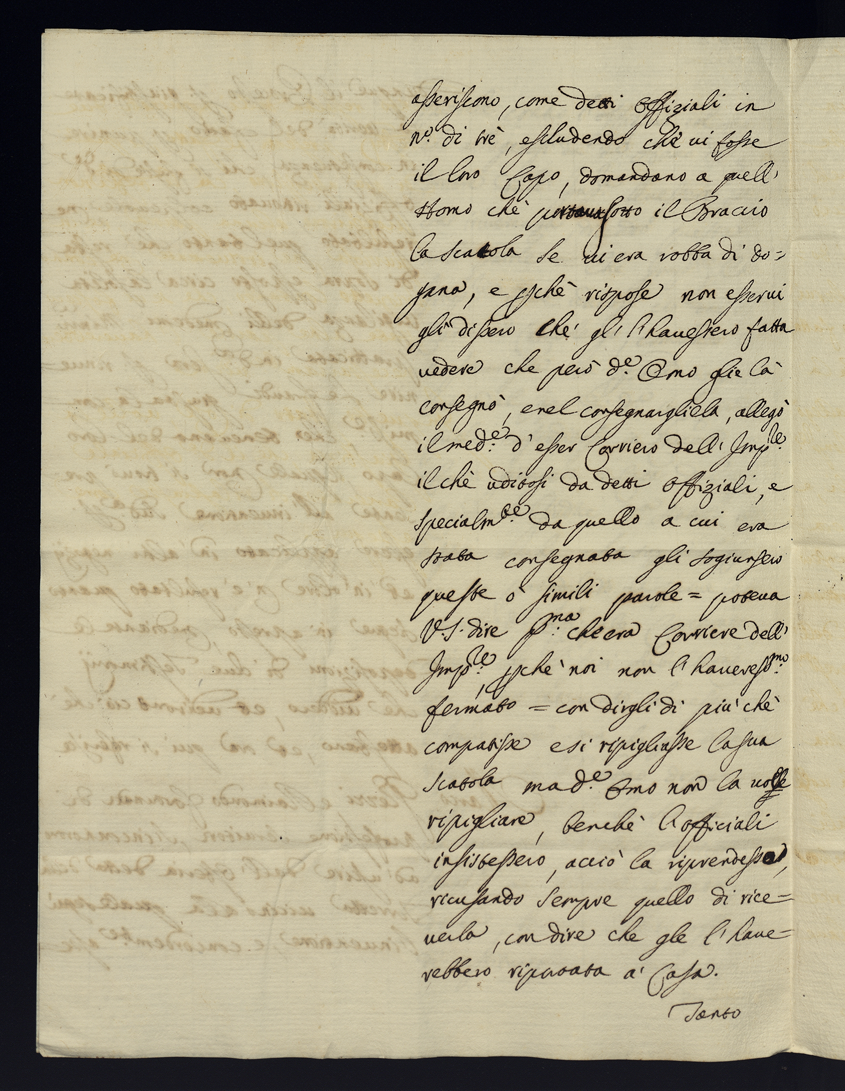 asseriscono, come detti Offiziali in
n.º di trè, escludendo chè vi fosse
il loro Capo, domandano a quell'
Homo chè sotto il Braccio
la scatola se vi era robba di do=
gana, e pchè rispose non esservi
gli dissero chè gl' l'havessero fatta
vedere che però d.º Omo glie là
consegnò, e nel consegnargliela, allegò
il med.º d'esser Corriero dell' Imp.le
il chè uditosi da detti Offiziali, e
specialm.te da quello a cui era
stata consegnata gli sogiunsero
queste ò simili parole = poteva
V.S. dire p.ma che era Corriere dell'
Imp.le, pchè noi non l'haveress.mo
fermato = con dirgli di più chè
compatisse e si ripigliasse la sua
scatola ma d.º Omo non la volle
ripigliare, benchè li officiali
insistessero, acciò la riprendesse,
ricusando sempre quello di rice=
verla, con dire che gle l'have=
rebbero riportata a' Casa.
Tanto